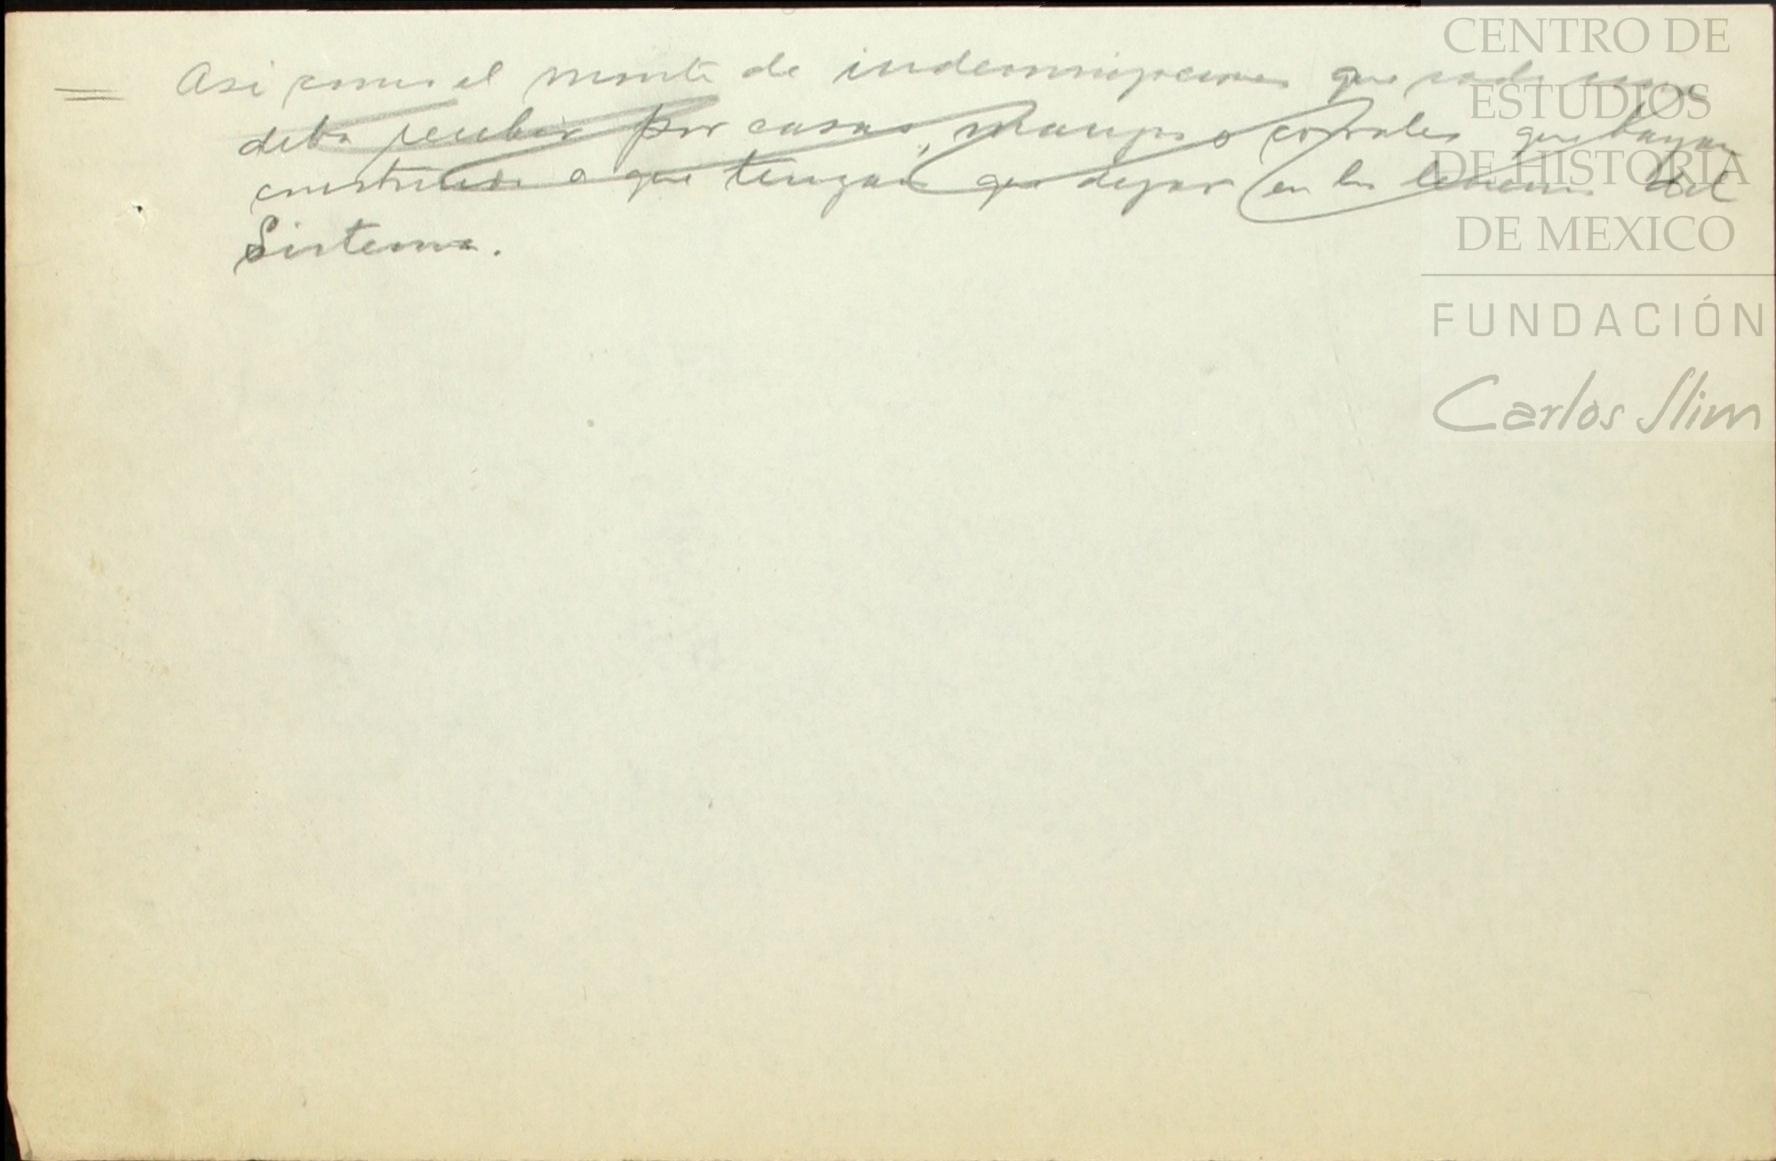 = Asi como el monto de indemnizaciones que cada uno
deba recibir por casas, o corrales que hayan
construido o que tengan que dejar en los del
Sistema.
CENTRO DE
ESTUDIOS
DE HISTORIA
DE MEXICO
FUNDACIÓN
Carlos Slim